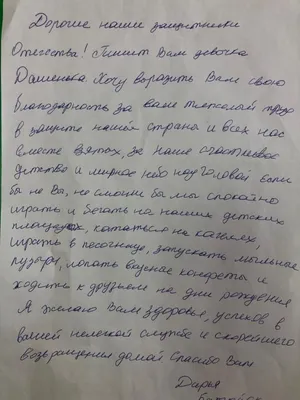 Дорогие наши защитники
Отечества! Пишит Вам девочка
Дашенька Хочу выразить Вам свою
благодарность за ваш тяжелый труд
в защите нашей страны и всех нас
вместе взятых, за наше счастливое
детство и мирное небо над головой если
бы не Вы, не смогли бы мы спокойно
играть и бегать на наших детских
площадках, кататься на качелях,
играть в песочнице, запускать мыльные
пузыри, лопать вкусные конфеты и
ходить к друзьям на дни рождения
Я желаю Вам здоровья, успехов в
вашей нелегкой службе и скорейшего
возвращения домой Спасибо Вам
Дарья